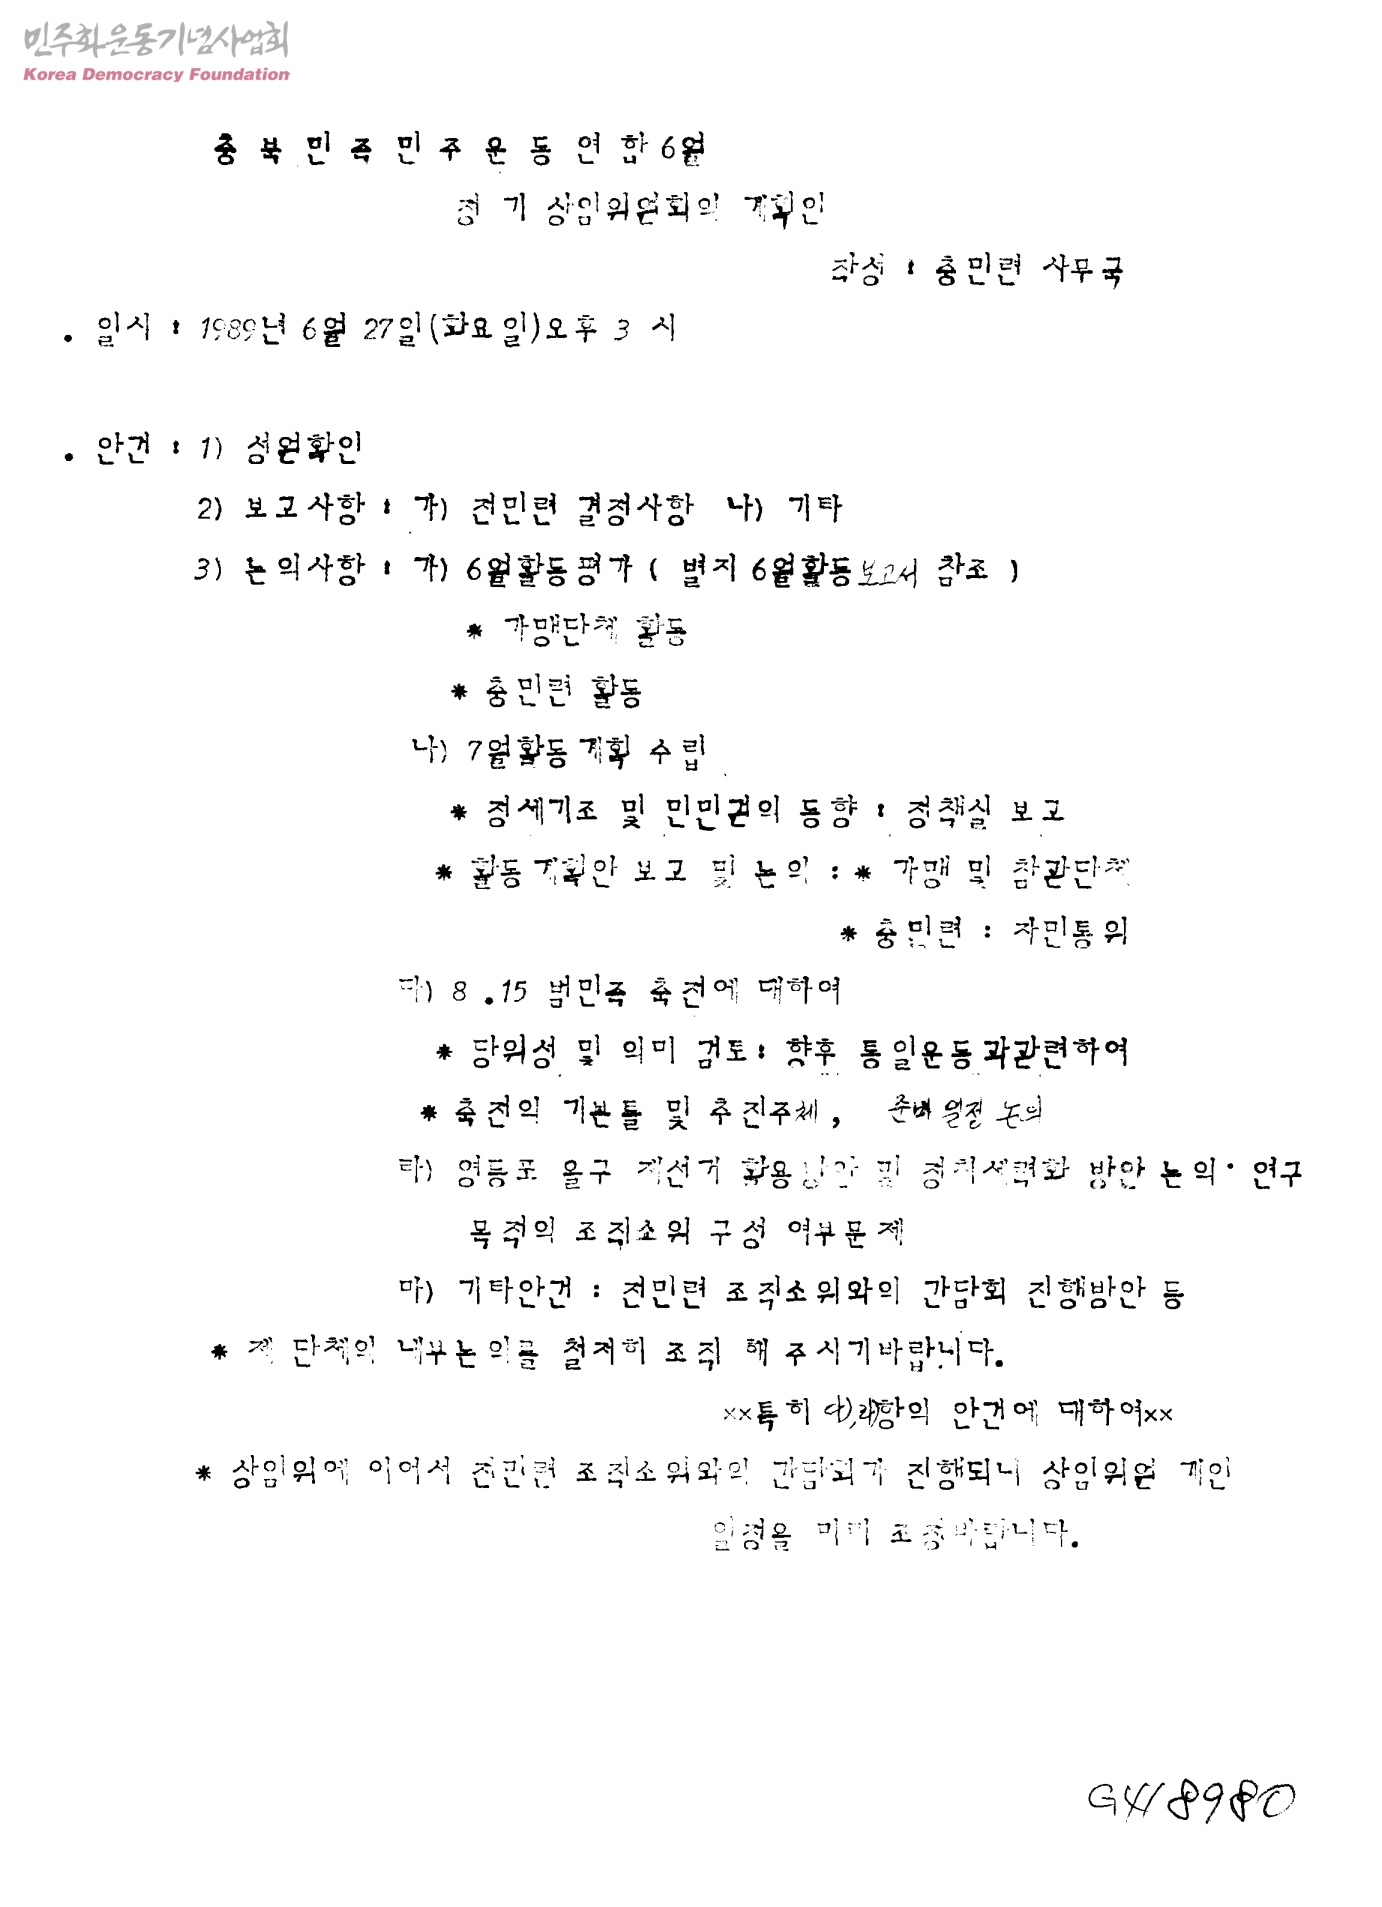 민주화운동기념사업회
Korea Democracy Foundation
충 북 민 족 민 주 운 동 연 합 6월
정 기 상임위원회의 계획안
작성 : 충민련 사무국
. 일시 : 1989년 6월 27일(화요일)오후 3 시
. 안건 : 1) 성원확인
2) 보고사항 : 가) 전민련 결정사항 나) 기타
3) 논의사항 : 가) 6월활동평가 ( 별지 6월활동보고서 참조 )
* 가맹단체 활동
* 충민련 활동
나) 7월활동계획 수립
* 정세기조 및 민민권의 동향 : 정책실 보고
* 활동계획안 보고 및 논의 : * 가맹 및 참관단체
* 충민련 : 자민통위
다) 8 .15 범민족 축전에 대하여
* 당위성 및 의미 검토: 향후 통일운동과관련하여
* 축전의 기본틀 및 추진주체, 준비 일정 논의
라) 영등포 을구 재선거 활용방안 및 정치세력화 방안 논의· 연구
목적의 조직소위 구성 여부문제
마) 기타안건 : 전민련 조직소위와의 간담회 진행방안 등
* 제 단체의 내부논의를 철저히 조직 해 주시기바랍니다.
××특히 다),라)항의 안건에 대하여××
* 상임위에 이어서 전민련 조직소위와의 간담회가 진행되니 상임위원 개인
일정을 미리 조정바랍니다.
G418980